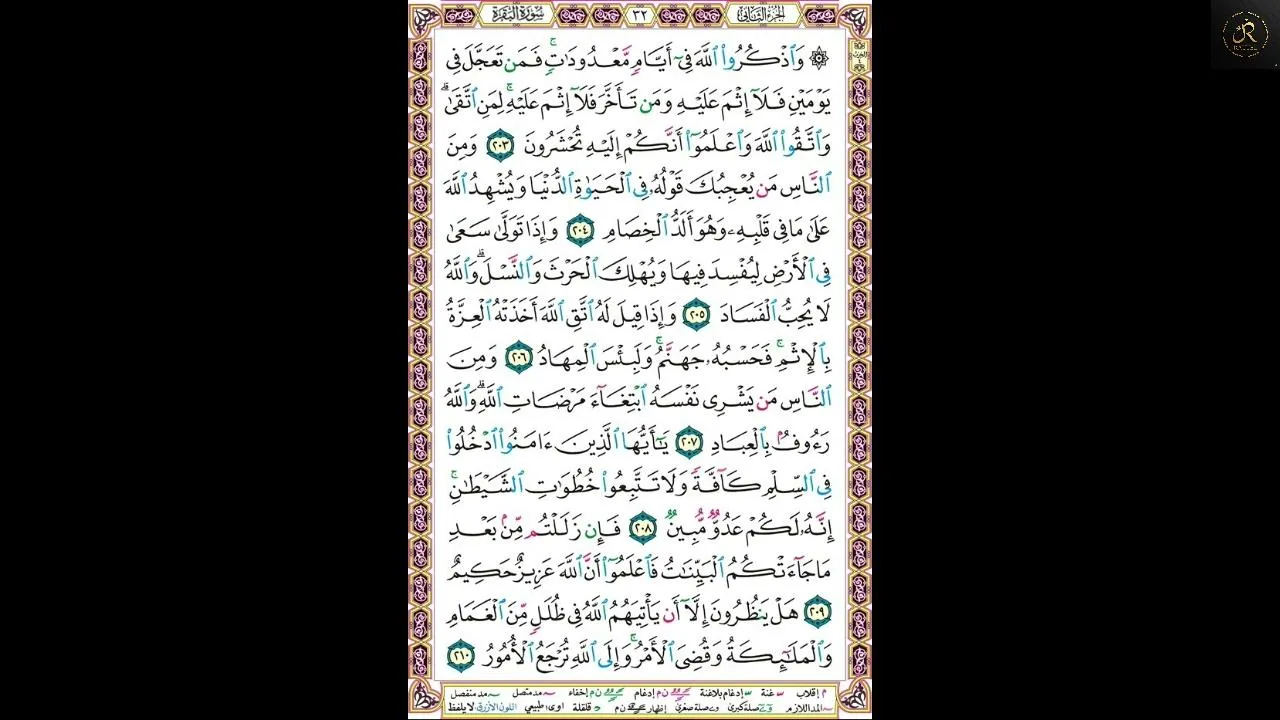 سورة البقرة ٣٢ الجزء الثاني
۞ وَٱذْكُرُوا۟ ٱللَّهَ فِىٓ أَيَّامٍ مَّعْدُودَٰتٍ ۚ فَمَن تَعَجَّلَ فِى
يَوْمَيْنِ فَلَآ إِثْمَ عَلَيْهِ وَمَن تَأَخَّرَ فَلَآ إِثْمَ عَلَيْهِ ۚ لِمَنِ ٱتَّقَىٰ ۗ
وَٱتَّقُوا۟ ٱللَّهَ وَٱعْلَمُوٓا۟ أَنَّكُمْ إِلَيْهِ تُحْشَرُونَ ٢٠٣ وَمِنَ
ٱلنَّاسِ مَن يُعْجِبُكَ قَوْلُهُۥ فِى ٱلْحَيَوٰةِ ٱلدُّنْيَا وَيُشْهِدُ ٱللَّهَ
عَلَىٰ مَا فِى قَلْبِهِۦ وَهُوَ أَلَدُّ ٱلْخِصَامِ ٢٠٤ وَإِذَا تَوَلَّىٰ سَعَىٰ
فِى ٱلْأَرْضِ لِيُفْسِدَ فِيهَا وَيُهْلِكَ ٱلْحَرْثَ وَٱلنَّسْلَ ۗ وَٱللَّهُ
لَا يُحِبُّ ٱلْفَسَادَ ٢٠٥ وَإِذَا قِيلَ لَهُ ٱتَّقِ ٱللَّهَ أَخَذَتْهُ ٱلْعِزَّةُ
بِٱلْإِثْمِ ۚ فَحَسْبُهُۥ جَهَنَّمُ ۚ وَلَبِئْسَ ٱلْمِهَادُ ٢٠٦ وَمِنَ
ٱلنَّاسِ مَن يَشْرِى نَفْسَهُ ٱبْتِغَآءَ مَرْضَاتِ ٱللَّهِ ۗ وَٱللَّهُ
رَءُوفٌۢ بِٱلْعِبَادِ ٢٠٧ يَٰٓأَيُّهَا ٱلَّذِينَ ءَامَنُوا۟ ٱدْخُلُوا۟
فِى ٱلسِّلْمِ كَآفَّةً وَلَا تَتَّبِعُوا۟ خُطُوَٰتِ ٱلشَّيْطَٰنِ ۚ
إِنَّهُۥ لَكُمْ عَدُوٌّ مُّبِينٌ ٢٠٨ فَإِن زَلَلْتُم مِّنۢ بَعْدِ
مَا جَآءَتْكُمُ ٱلْبَيِّنَٰتُ فَٱعْلَمُوٓا۟ أَنَّ ٱللَّهَ عَزِيزٌ حَكِيمٌ
٢٠٩ هَلْ يَنظُرُونَ إِلَّآ أَن يَأْتِيَهُمُ ٱللَّهُ فِى ظُلَلٍ مِّنَ ٱلْغَمَامِ
وَٱلْمَلَٰٓئِكَةُ وَقُضِىَ ٱلْأَمْرُ ۚ وَإِلَى ٱللَّهِ تُرْجَعُ ٱلْأُمُورُ ٢١٠
إقلاب غنة إدغام بلاغنة إدغام إخفاء مد متصل مد منفصل
المد اللازم صلة كبرى صلة صغرى إظهار قلقلة طبيعي اللون الأزرق لا يلفظ